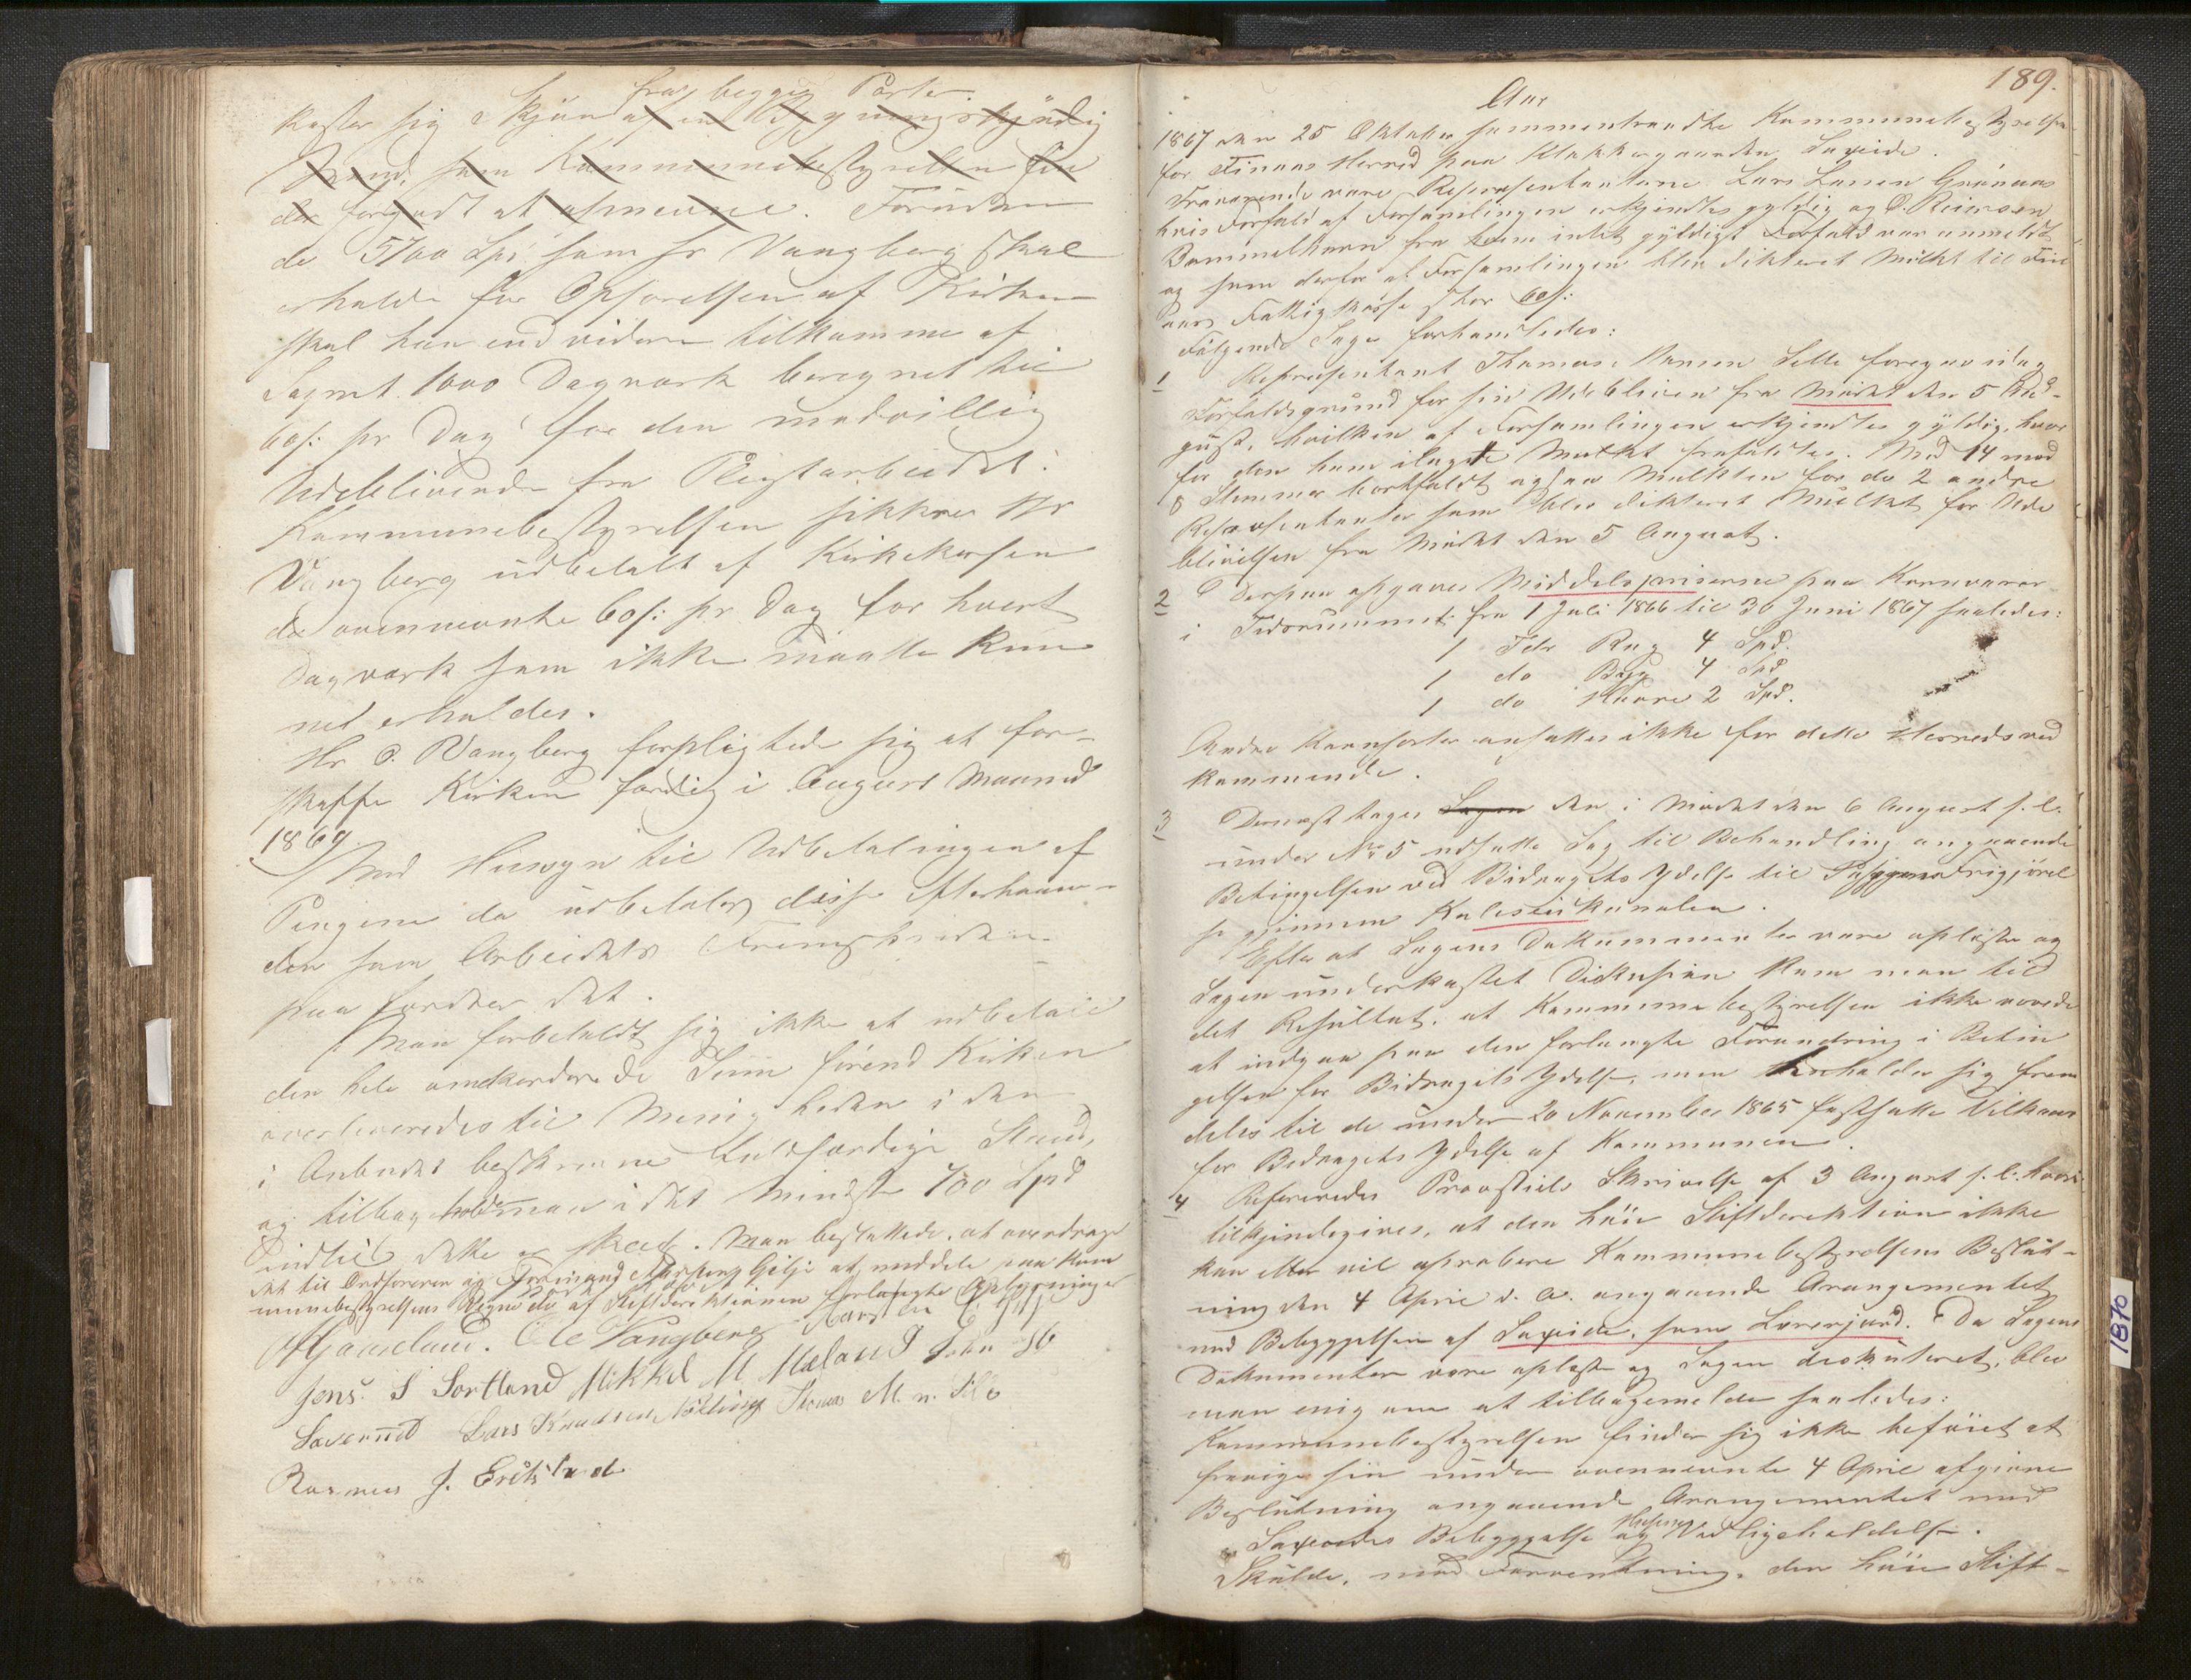 fra begge Parter.
kaster sig Skjøn af en Bygningskyndig
Mand, som Kommunebestyrelsen fin
der forgodt at opnevne. Foruden
de 5700 Spd som hr Vangberg skal
erholde for Opførelsen af Kirken
skal han end videre tilkomme af
Sognet 1000 Dagværk beregnet til
60 s: pr Dag for den modvillig
Udeblivende fra Pligtarbeidet.
Kommunebestyrelsen sikkrer Hr
Vangberg udbetalt af Kirkekassen
de ovennevnte 60 s: pr Dag for hvert
Dagværk som ikke maatte kun
net erholdes.
Hr O. Vangberg forpligtede sig at for-
skaffe Kirken færdig i August Maaned
1869.
Med Hensyn til Udbetalingen af
Pengene da udbetales disse efterhaan-
den som Arbeidets Fremskriden
paa fordrer det.
Man forbeholdt sig ikke at udbetale
den hele omakorderede Sum førend Kirken
overleveredes til Menigheden i den
i Anbudet beskrevne fuldfærdige Stand,
og tilbageholde man i det mindste 700 Spd
indtil dette er skeet. Man besluttede, at overdrage
det til Ordføreren og Gilje at meddele paa Kom
munebestyrelsens Vegne de af Stiftdirektionen forlangte Oplysninger
Hjaaeland. Ole Vangberg
Jens. S Sortland Mikkel M Mæland
Lars Knudsen Thomas M. n.
Rasmus J.
189.
Aar
1867 den 25 Oktober sammentraadte Kommunebestyrelsen
for Finaas Herred paa Klokkergaarden Saxeide.
Fraværende vare Repræsentanterne Lars Larsen Grønnaas
hvis Forfald af Forsamlingen erkjendtes gyldig og O. Reimersen
Bømmelhavn fra hvem intet gyldigt Forfald var anmeldt
og som derfor af Forsamlingen blev dikteret Mulkt til Fin
aas Fattigkasse stor 60 s:
Følgende Sager forhandledes:
1 Repræsentant Thomas Hansen foregav idag
Forfaldsgrund for sin Udeblivelse fra Mødet den 5 Au-
gust, hvilken af Forsamlingen erkjendtes gyldig, hvor
for den ham ilagte Mulkt frafaldtes. Med 14 mod
8 Stemmer bortfaldt ogsaa Mulkten for de 2 andre
Repræsentanter som blev dikteret Mulkt for Ude
blivelsen fra Mødet den 5 August.
2 Derpaa opgaves Middelspriserne paa Kornvarer
i Tidsrummet fra 1 Juli 1866 til 30 Juni 1867 saaledes:
1 Tde Rug 4 Spd.
1 do Byg 4 Spd
1 do Havre 2 Spd.
Andre Kornsorter ansattes ikke for dette Herreds ved
kommende.
3 Dernæst toges Sagen den i Mødet den 6 August s. l.
under No 5 udsatte Sag til Behandling angaaende
Betingelsen ved Bidragets Ydelse til Frigjørel
se gjennem
Efter at Sagens Dokumenter vare oplæste og
Sagen underkastet Diskusion kom man til
det Resultat, at Kommunebestyrelsen ikke vovede
at indgaa paa den forlangte Forandring i Betin
gelsen for Bidragets Ydelse, men henholder sig frem
deles til de under 20 November 1865 fastsatte Vilkaar
for Bidragets Ydelse af Kommunen.
4 Refereredes Provstiets Skrivelse af 3 August s. l. hvori
tilkjendegives, at den høie Stiftdirektion ikke
kan eller vil aprobere Kommunebestyrelsens Beslut-
ning den 4 April d. A. angaaende Arangementet
med Bebyggelsen af Saxeide, som Lærerjord. Da Sagens
Dokumenter vare oplæste og Sagen diskuteret, blev
man enig om at tilbagemelde saaledes:
Kommunebestyrelsen finder sig ikke beføiet at
fravige sin under ovennevnte 4 April afgivne
Beslutning angaaende Arangementet med
Saxeides Bebyggelse og Husenes Vedligeholdelse.
Skulde, mod Forventning, den høie Stift-
1870